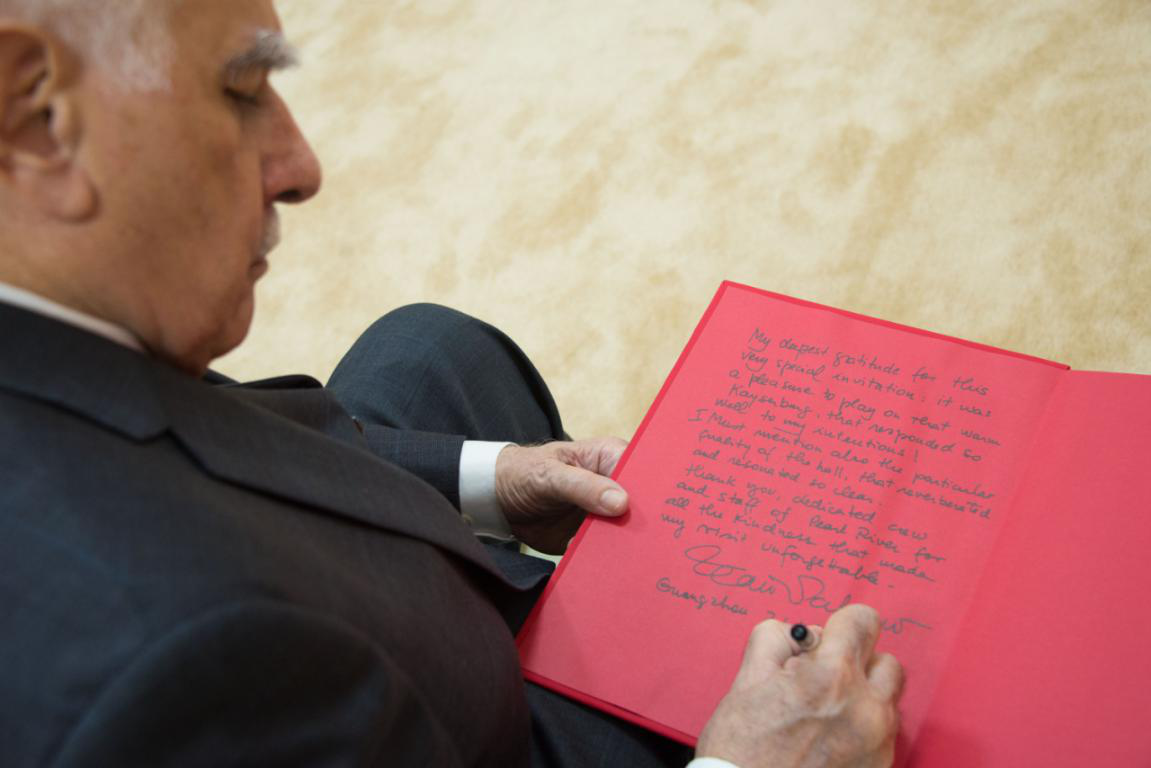 My deepest gratitude for this
very special invitation: it was
a pleasure to play on that warm
Kayserburg, that responded so
well to my intentions!
I must mention also the particular
quality of the hall, that reverberated
and resonated so clear.
thank you, dedicated crew
and staff of Pearl River for
all the kindness that made
my visit unforgettable.
Guangzhou